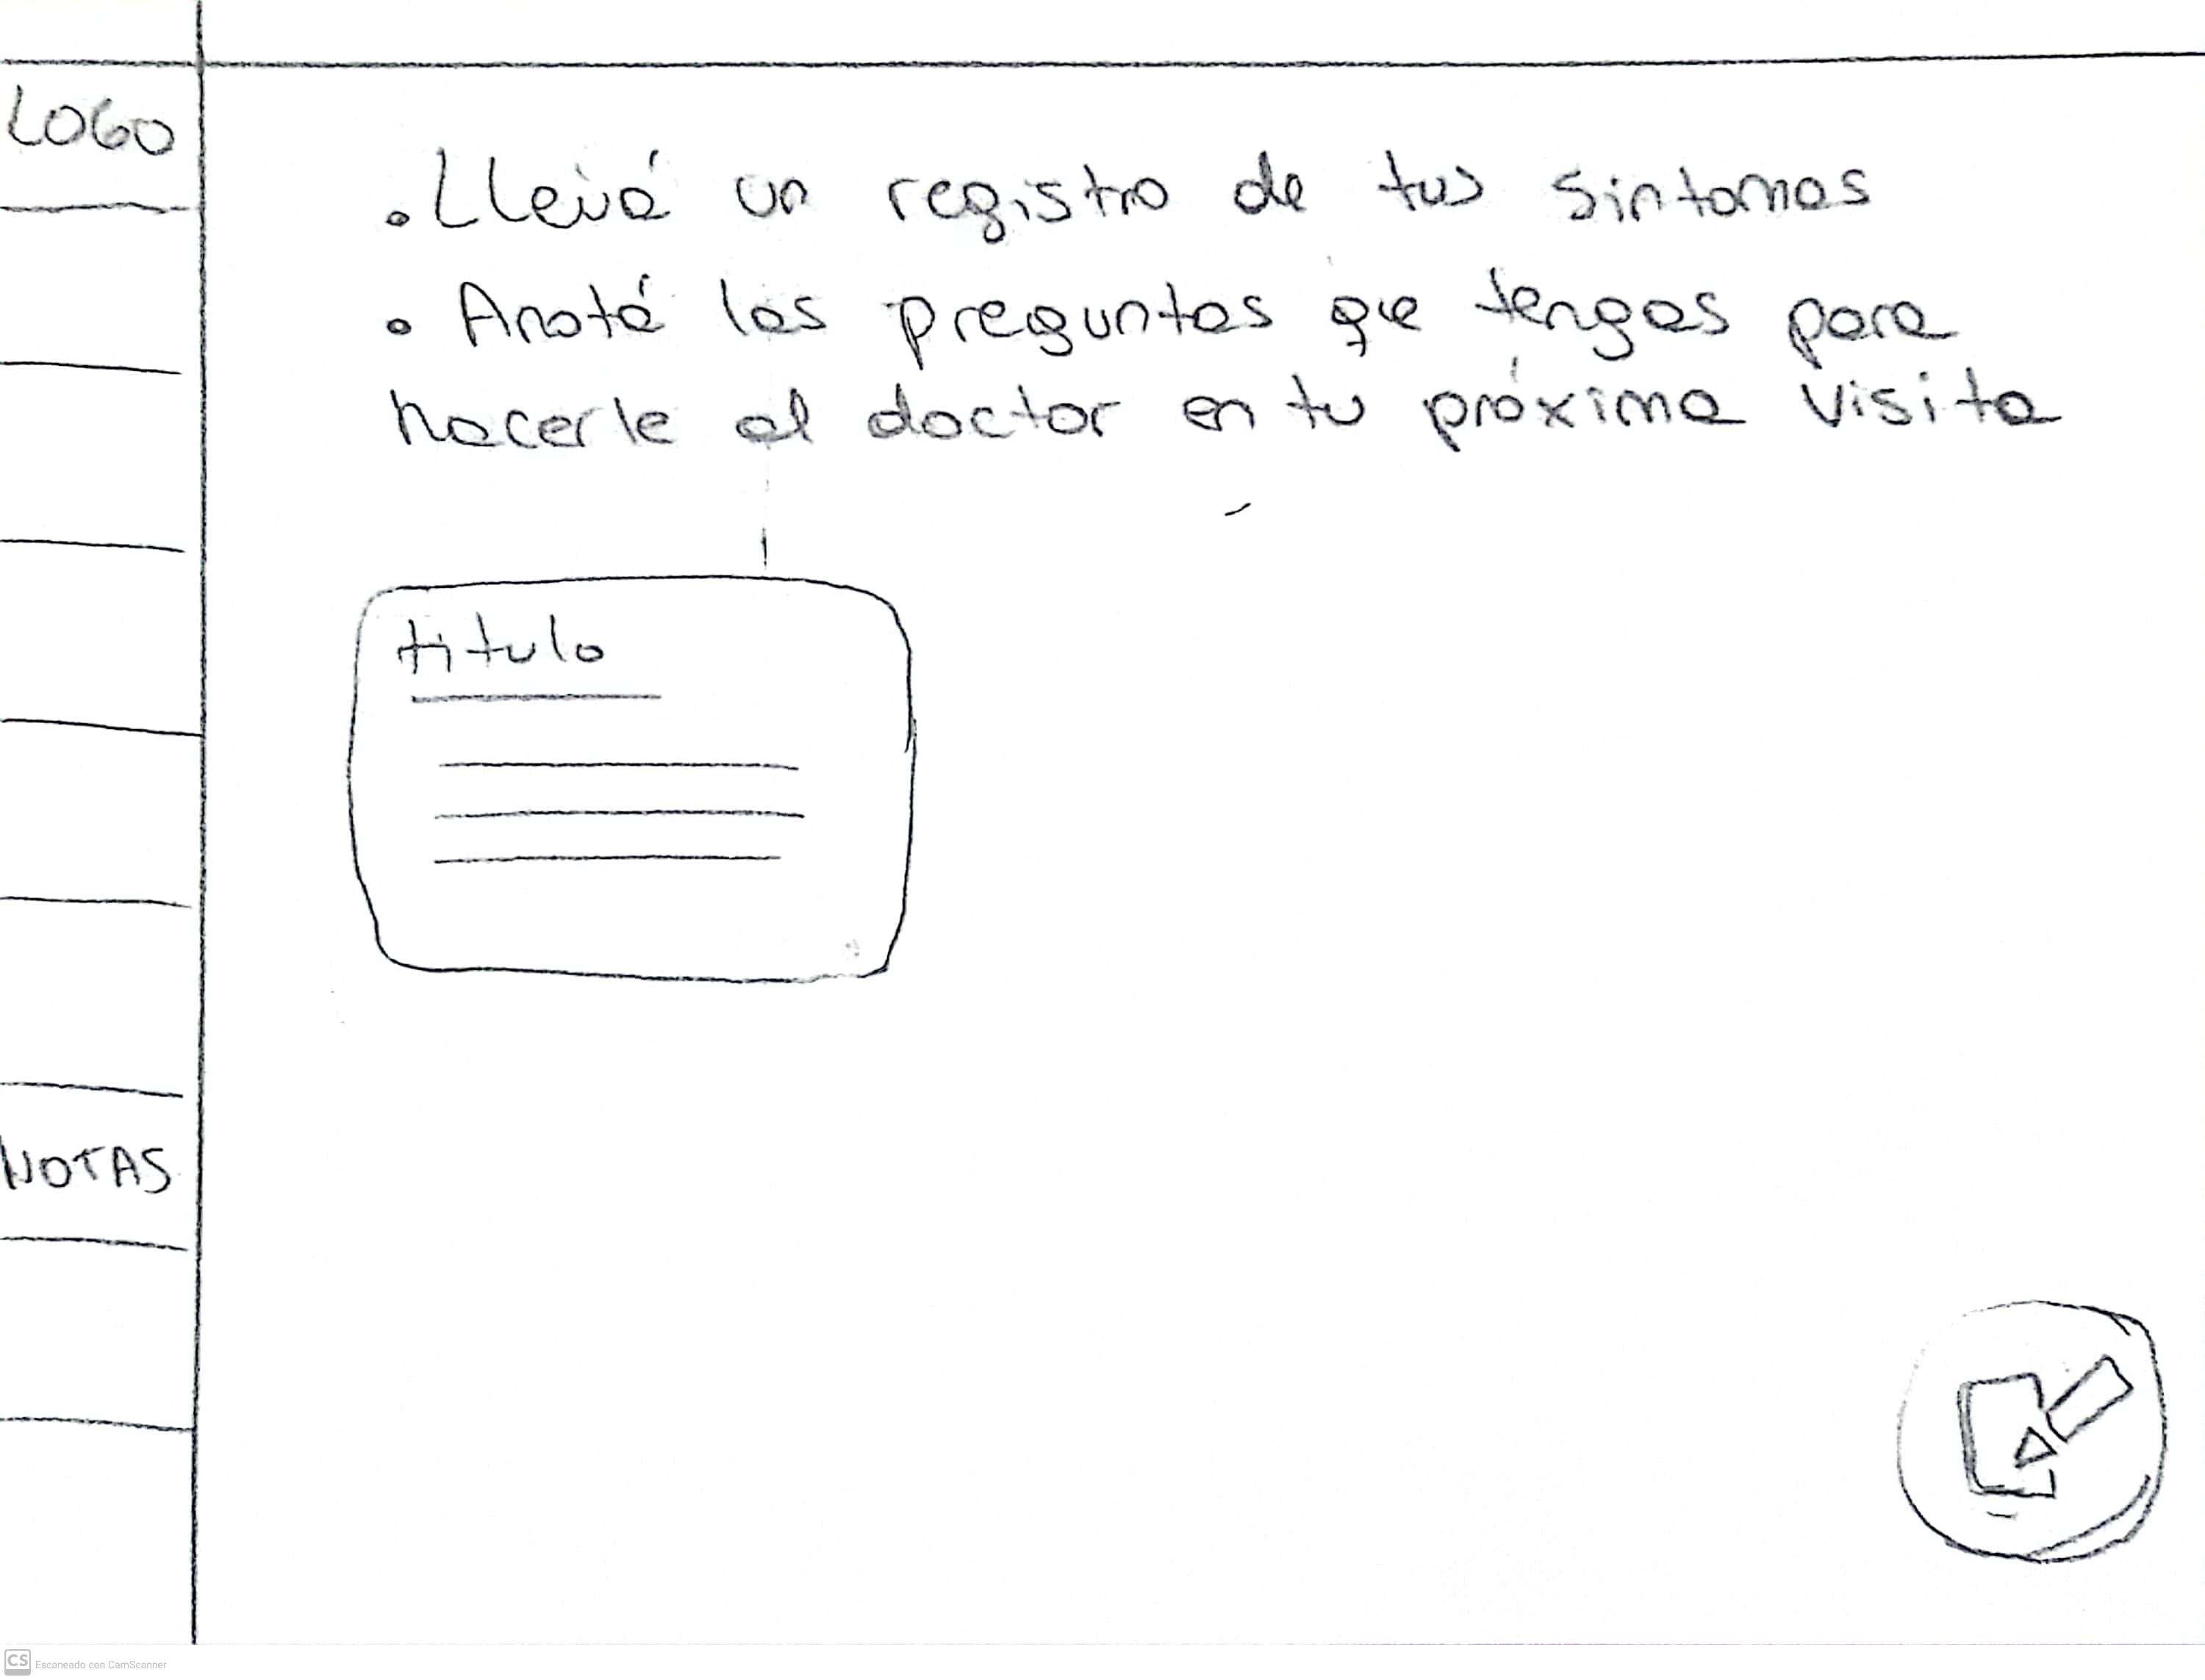 LOGO
• Llevá un registro de tus sintomas
• Anotá las preguntas que tengas para
hacerle al doctor en tu próxima visita
titulo
NOTAS
CS Escaneado con CamScanner